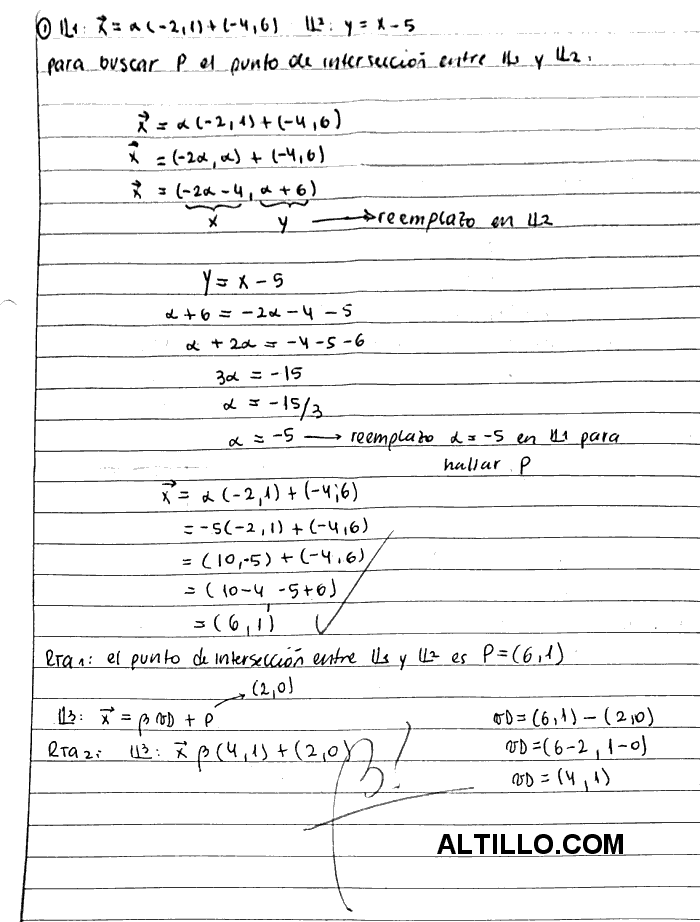 ① L1: x⃗ = α(-2,1)+(-4,6) L2: y = x - 5
para buscar P el punto de intersección entre L1 y L2.
x⃗ = α(-2,1)+(-4,6)
x⃗ = (-2α,α) + (-4,6)
x⃗ = (-2α-4, α+6)
x y → reemplazo en L2
y = x - 5
α+6 = -2α-4-5
α + 2α = -4-5-6
3α = -15
α = -15/3
α = -5 → reemplazo α=-5 en L1 para
hallar P
x⃗ = α(-2,1)+(-4,6)
= -5(-2,1)+(-4,6)
= (10,-5)+(-4,6)
= (10-4, -5+6)
= (6,1)
Rta1: el punto de intersección entre L1 y L2 es P=(6,1)
(2,0)
L3: x⃗ = β vD + P vD=(6,1)-(2,0)
Rta2: L3: x⃗ β(4,1)+(2,0) vD=(6-2, 1-0)
3! vD=(4,1)
ALTILLO.COM